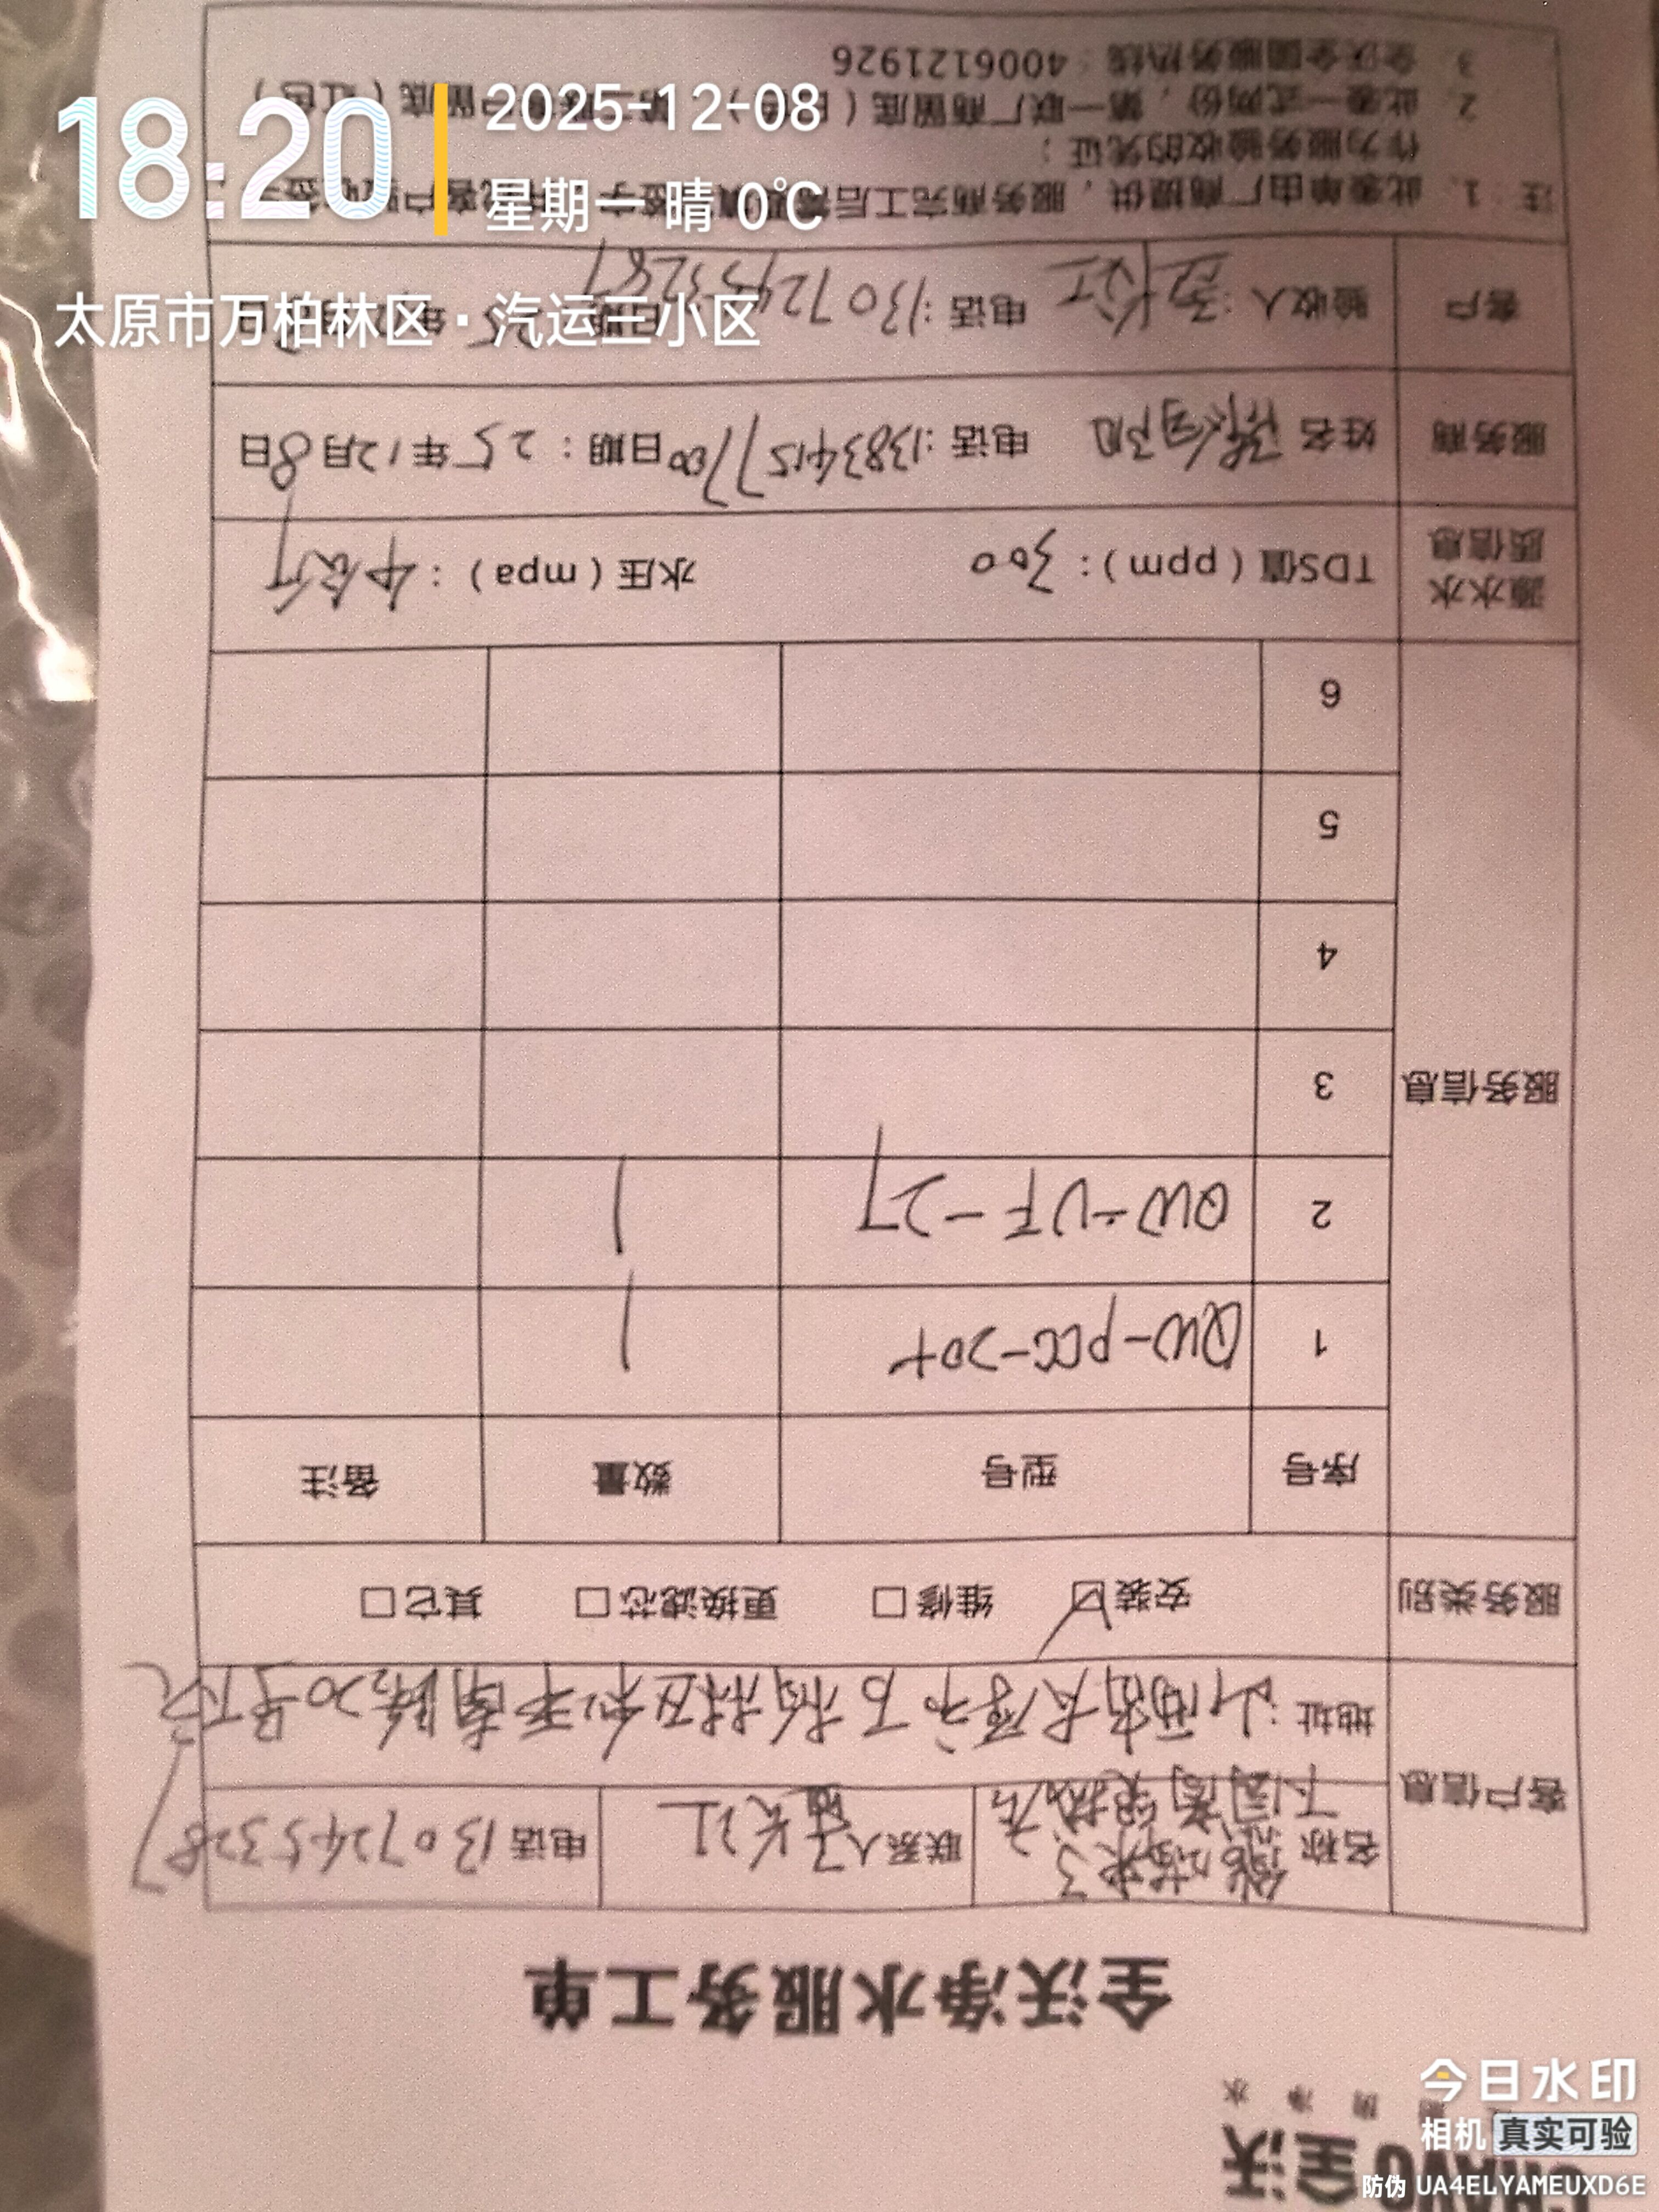 18:20
2025-12-08
星期一 晴 0℃
太原市万柏林区·汽运三小区
全沃
净水
全沃净水服务工单
客户信息
名称
联系人
电话 13072453287
地址：山西省太原市万柏林区和平南路20号
服务类别
安装☑ 维修□ 更换滤芯□ 其它□
服务信息
序号 型号 数量 备注
1 QW-PCC-20+ 1
2 QW-UF-27 1
3
4
5
6
源水水质信息
TDS值（ppm）：300 水压（mpa）：
服务商
姓名 电话：13834157700 日期：25年12月8日
客户
验收人： 电话：13072453287 日期 25年
注：1、此表单由厂商提供，服务商完工后需要
作为服务验收的凭证；
2、此表一式两份，第一联厂商留底 留底（红色）
3、全沃全国服务热线：4006121926
今日水印
相机 真实可验
防伪 UA4ELYAMEUXD6E